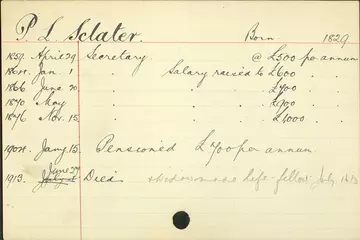 P. L. Sclater. Born 1829
1859. April 29 Secretary. @ £500 per annum
Jan. 1 " Salary raised to £600 " "
1866 June 20 " £700 " "
1870 May " " "
1876 Nov. 15. " £1000 " "
Jany. 15. Pensioned £700 per annum.
June 27
1913. Died life-fellow July